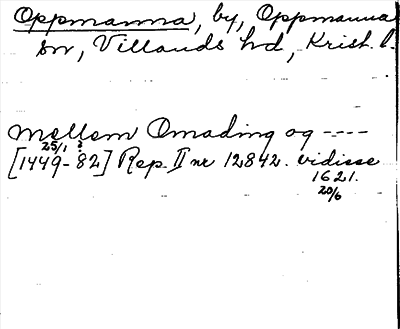 Oppmanna, by, Oppmanna
sn, Villands hd, Krist. l.
mellem Omading og ----
25/1 ?
[1449-82] Rep. II nr 12842. vidisse
1621.
20/6